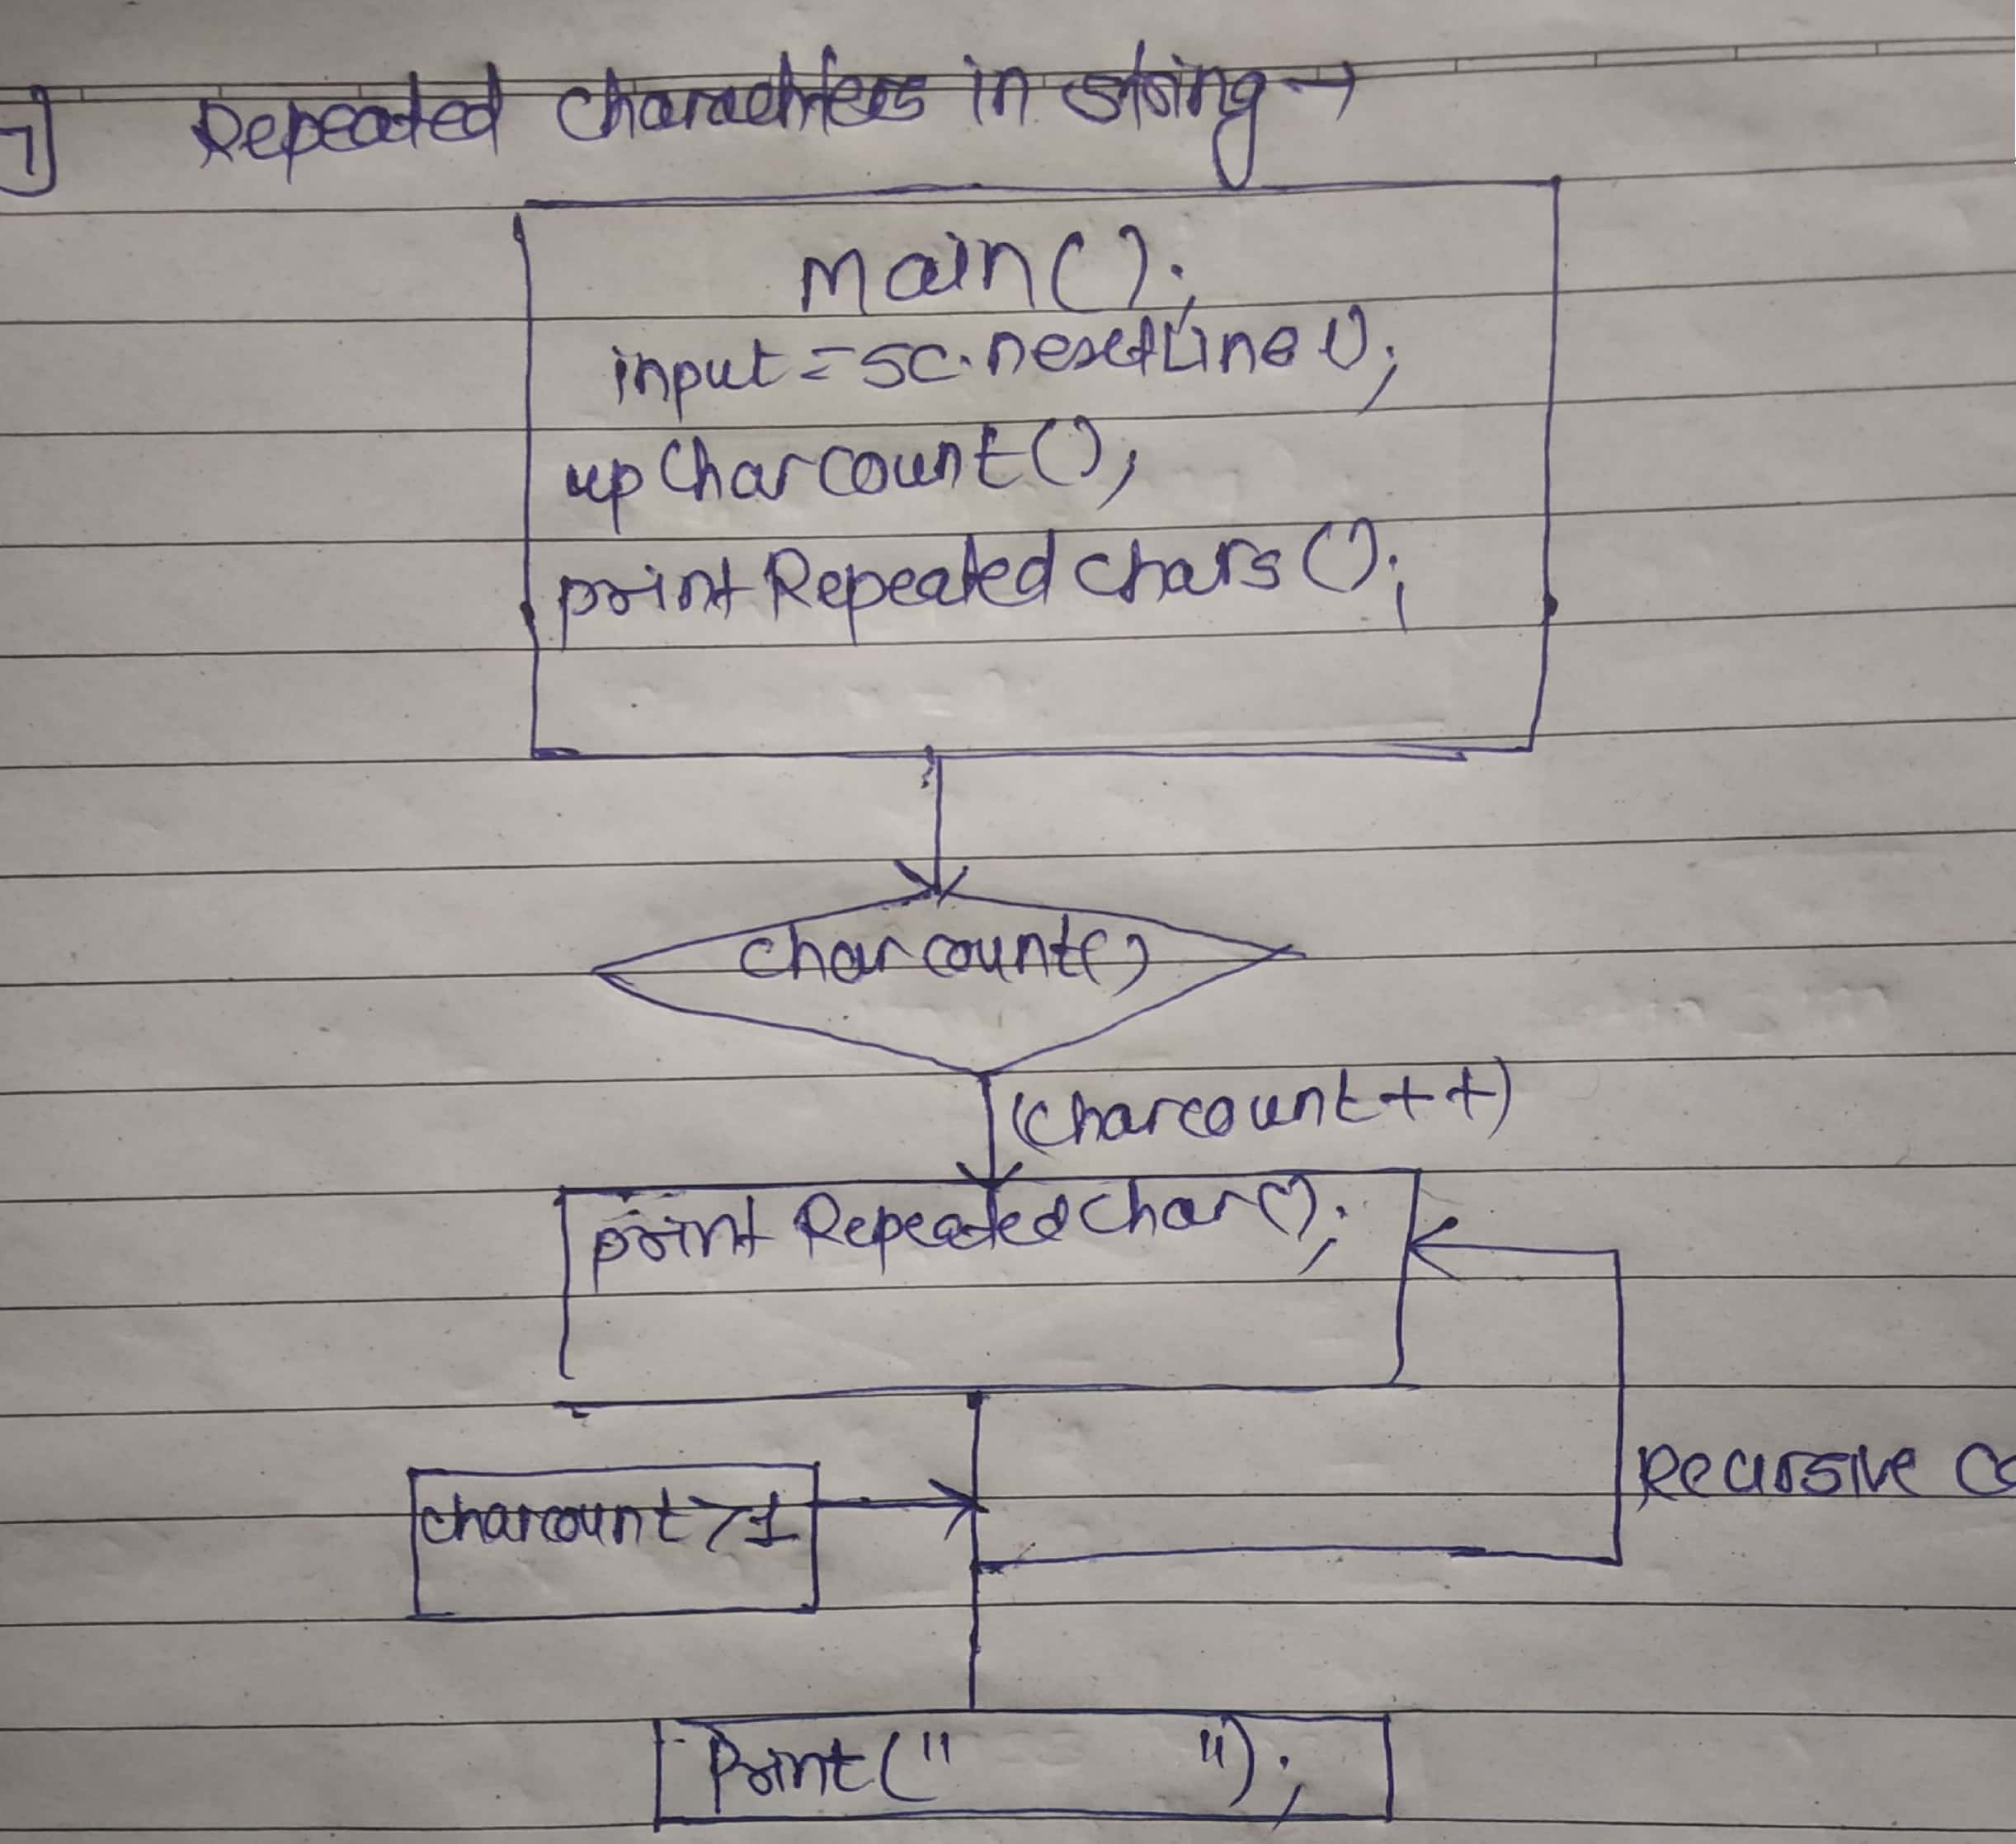 7] Repeated charachters in string →
main();
input = sc.nextLine();
upCharcount();
printRepeatedchars();
charcount()
(charcount++)
print Repeatedchar();
charcount >1
Recursive
Print(" ");